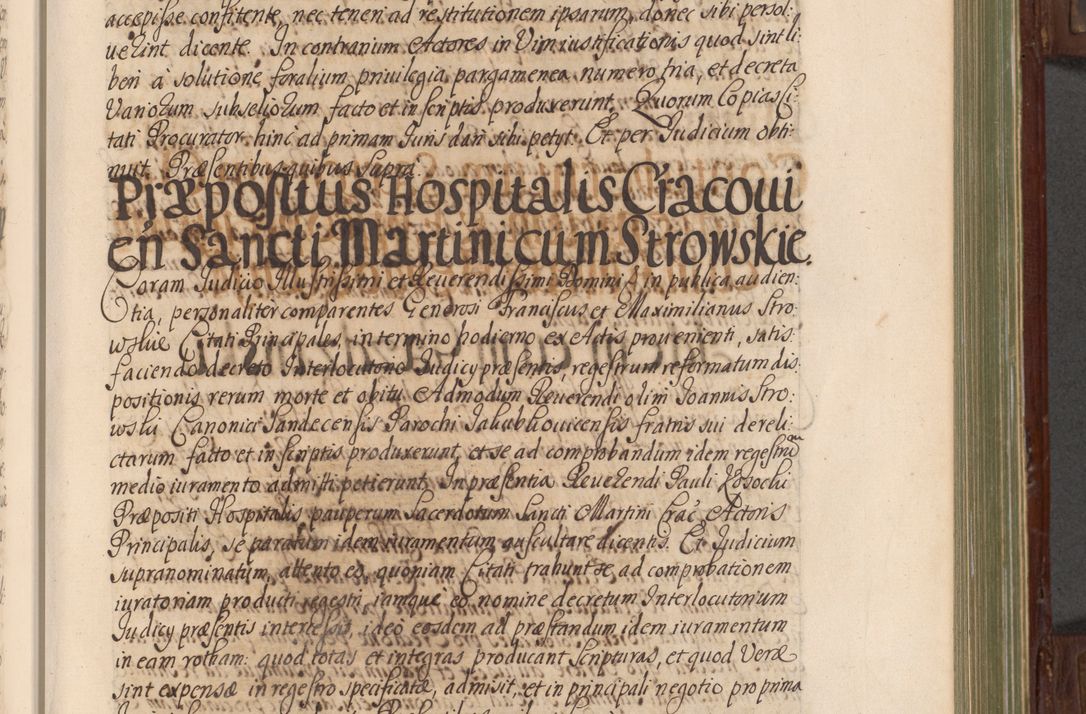 accepisse confitente, nec teneri ad restitutionem ipsarum, donec sibi persol:
verint dicente. In contrarium Actores in Vim iustificationis quod sint li:
beri a solutione foralium, privilegia pargamenea numero tria, et decreta
Variorum subseliorum facto et in scriptis produxerunt. Quorum Copias Ci:
tati Procurator hinc ad primam Juris dari sibi petyt. Et per Judicium obti:
nuit. Præsentibus quibus supra.
Præpositus Hospitalis Cracovi
en Sancti Martini cum Strowskie.
Coram Judicio Illustrissimi et Reverendissimi Domini & in publica audien:
tia, personaliter comparentes Generosi Franciscus et Maximilianus Stro:
wskie Citati Principales, in termino hodierno ex Actis provenienti, satis:
faciendo decreto Interlocutorio Judicy præsentis, regestrum reformatum dis:
positionis rerum morte et obitu Admodum Reverendi olim Joannis Stro:
wski Canonici Sandecensis Parochi Jakubkovicensis fratris sui dereli:
ctarum facto et in scriptis produxerunt, et se ad comprobandum idem regestrum
medio iuramento admitti petierunt. In præsentia Reverendi Pauli Kosochi
Præpositi Hospitalis pauperum Sacerdotum Sancti Martini Crac. Actoris
Principalis, se paratum idem iuramentum auscultare dicentis. Et Judicium
supranominatum, attento eo, quoniam Citati trahunt se ad comprobationem
iuratoriam producti regestri, iamque eo nomine decretum Interlocutorium
Judicy præsentis intercessit, ideo eosdem ad præstandum idem iuramentum
in eam rotham: quod totas et integras producant scripturas, et quod Veræ
sint expensæ in regestro specificatæ, admisit, et in principali negotio pro prima